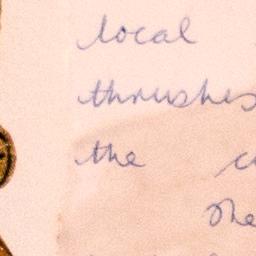 local
thrushes
the
The